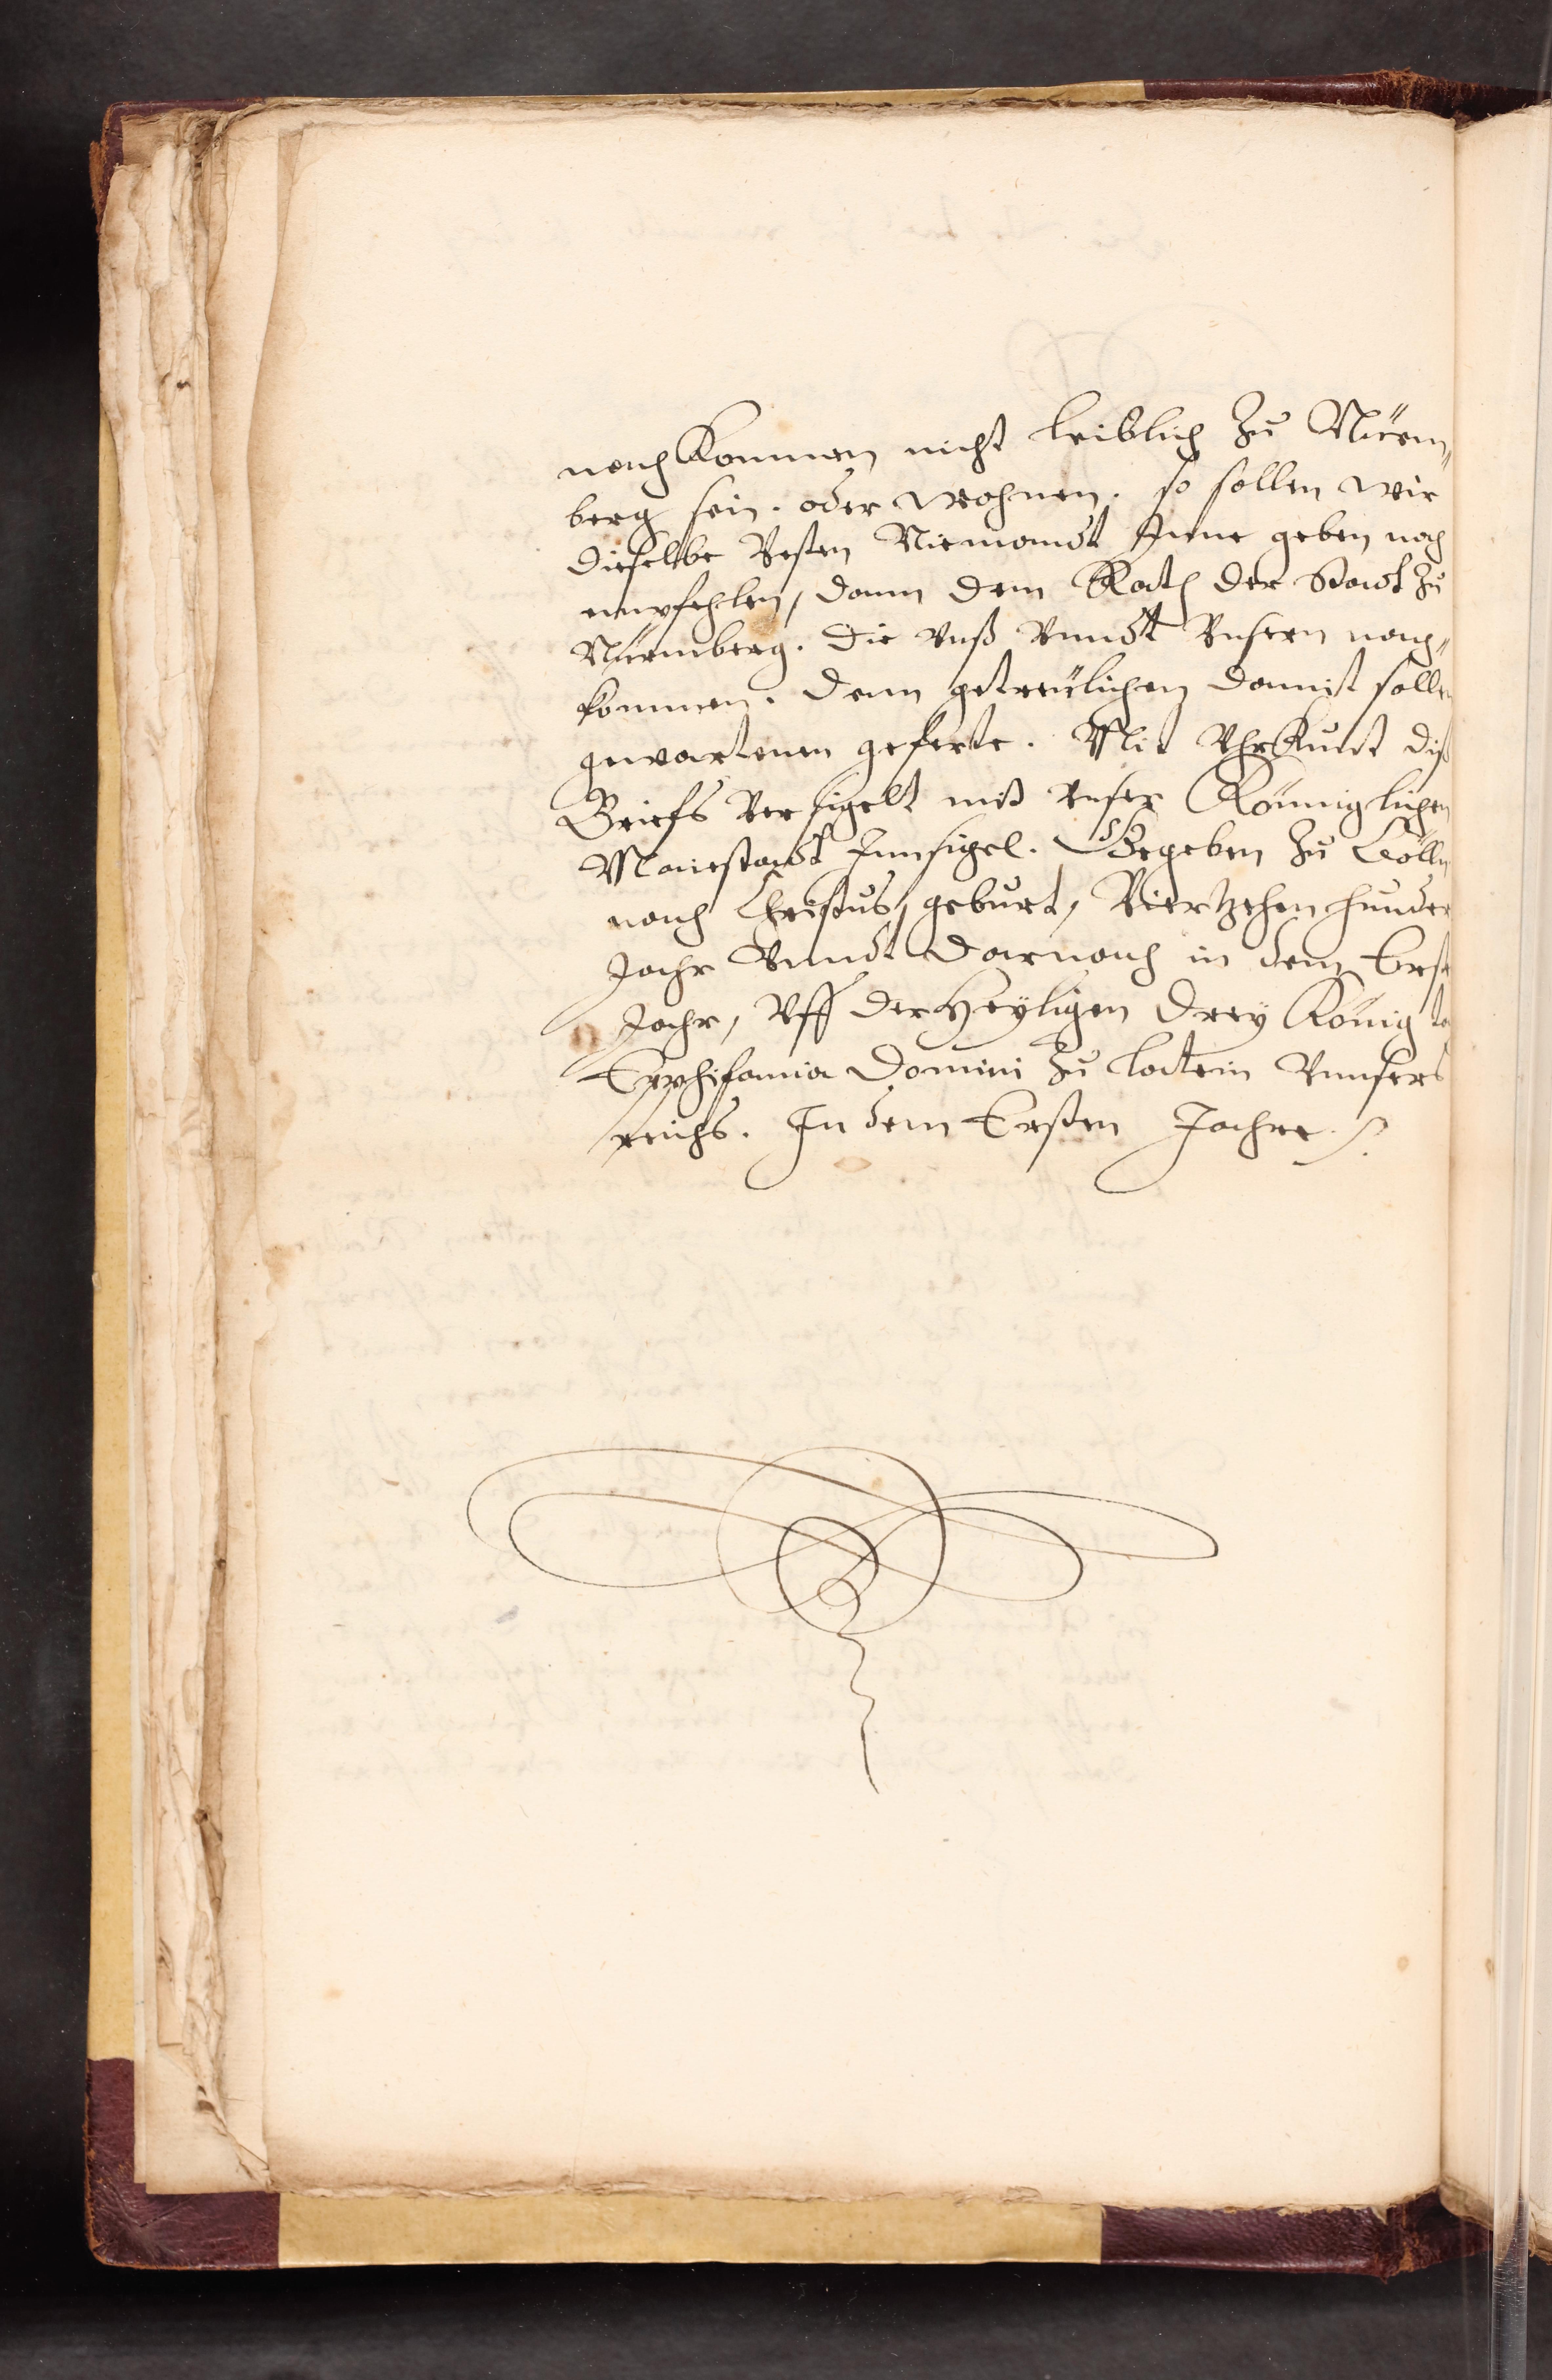 nach Kommen nicht leiblich Zu Nürm„
berg sein. oder wohnen. so sollen wir
dieselbe Vesten Niemandt Inne geben noch
empfehlen, dann dem Rath der Stadt Zu
Nürmberg. die vnß Vnndt Vnsern nach„
kommen. denn getreülichen damit solle
gewartenen geferte. Mit VhrKunt diß
Briefs Versigelt mit vnser Könniglichen
Maiestadt Innsigel. Gegeben Zu Cölln
nach Christus, geburt, Viertzehen hunder
Jahr Vnndt darnach in dem Erste
Jahr, Vff der Heyligen Drey König ta
Epphifania Domini Zu latein Vnnsers
reichs. In dem Ersten Jahre.